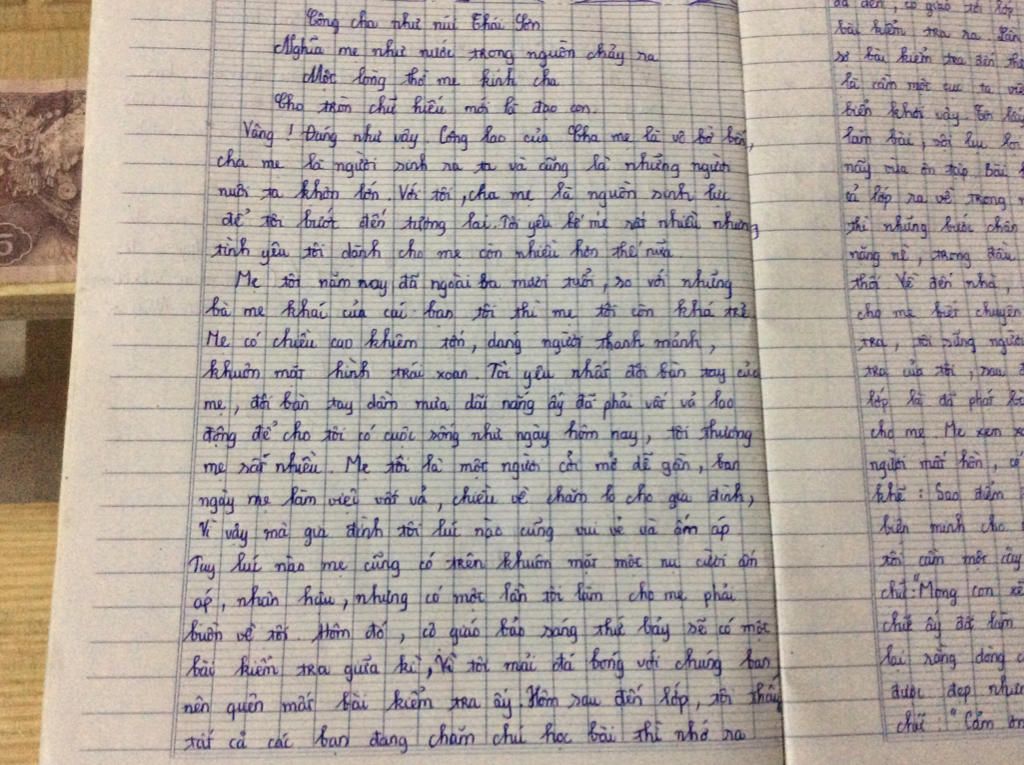 Công cha như núi Thái Sơn
Nghĩa mẹ như nước trong nguồn chảy ra
Một lòng thờ mẹ kính cha
Cho tròn chữ hiếu mới là đạo con.
Vâng ! Đúng như vậy. Công lao của Cha mẹ là vô bờ bến,
cha mẹ là người sinh ra ta và cũng là những người
nuôi ta khôn lớn. Với tôi, cha mẹ là nguồn sinh lực
để tôi bước đến tương lai. Tôi yêu bố mẹ rất nhiều nhưng
tình yêu tôi dành cho mẹ còn nhiều hơn thế nữa
Mẹ tôi năm nay đã ngoài ba mươi tuổi, so với những
bà mẹ khác của các bạn tôi thì mẹ tôi còn khá trẻ
Mẹ có chiều cao khiêm tốn, dáng người thanh mảnh,
khuôn mặt hình trái xoan. Tôi yêu nhất đôi bàn tay của
mẹ, đôi bàn tay dầm mưa dãi nắng ấy đã phải vất vả lao
động để cho tôi có cuộc sống như ngày hôm nay, tôi thương
mẹ rất nhiều. Mẹ tôi là một người cởi mở dễ gần, ban
ngày mẹ làm việc vất vả, chiều về chăm lo cho gia đình,
Vì vậy mà gia đình tôi lúc nào cũng vui vẻ và ấm áp
Tuy lúc nào mẹ cũng có trên khuôn mặt một nụ cười ấm
áp, nhân hậu, nhưng có một lần tôi làm cho mẹ phải
buồn về tôi. Hôm đó, cô giáo bảo sáng thứ bảy sẽ có một
bài kiểm tra giữa kì, Vì tôi mải đá bóng với chúng bạn
nên quên mất bài kiểm tra ấy. Hôm sau đến lớp, tôi thấy
tất cả các bạn đang chăm chú học bài thì nhớ ra
đã đến, cô giáo tới lớp
bài kiểm tra ra. Lần
sơ bài kiểm tra đến
là cầm một cục
biển khơi vậy. Tôi
làm bài, rồi lục
nãy vừa ôn tập. Bài
cả lớp ra về trong
thì những bước chân
nặng nề, trong đầu
thôi Về đến nhà,
cho mẹ biết chuyện
tra, tôi sững người
tra của tôi, sau
lớp là đã phát
cho mẹ. Mẹ xem
người mất hồn, có
khẽ : Sao điểm
biện minh cho
tôi cầm một cây
chữ: "Mong con
chữ ấy đã làm
lại rằng dòng
được đẹp như
chữ : "Cảm ơn
5